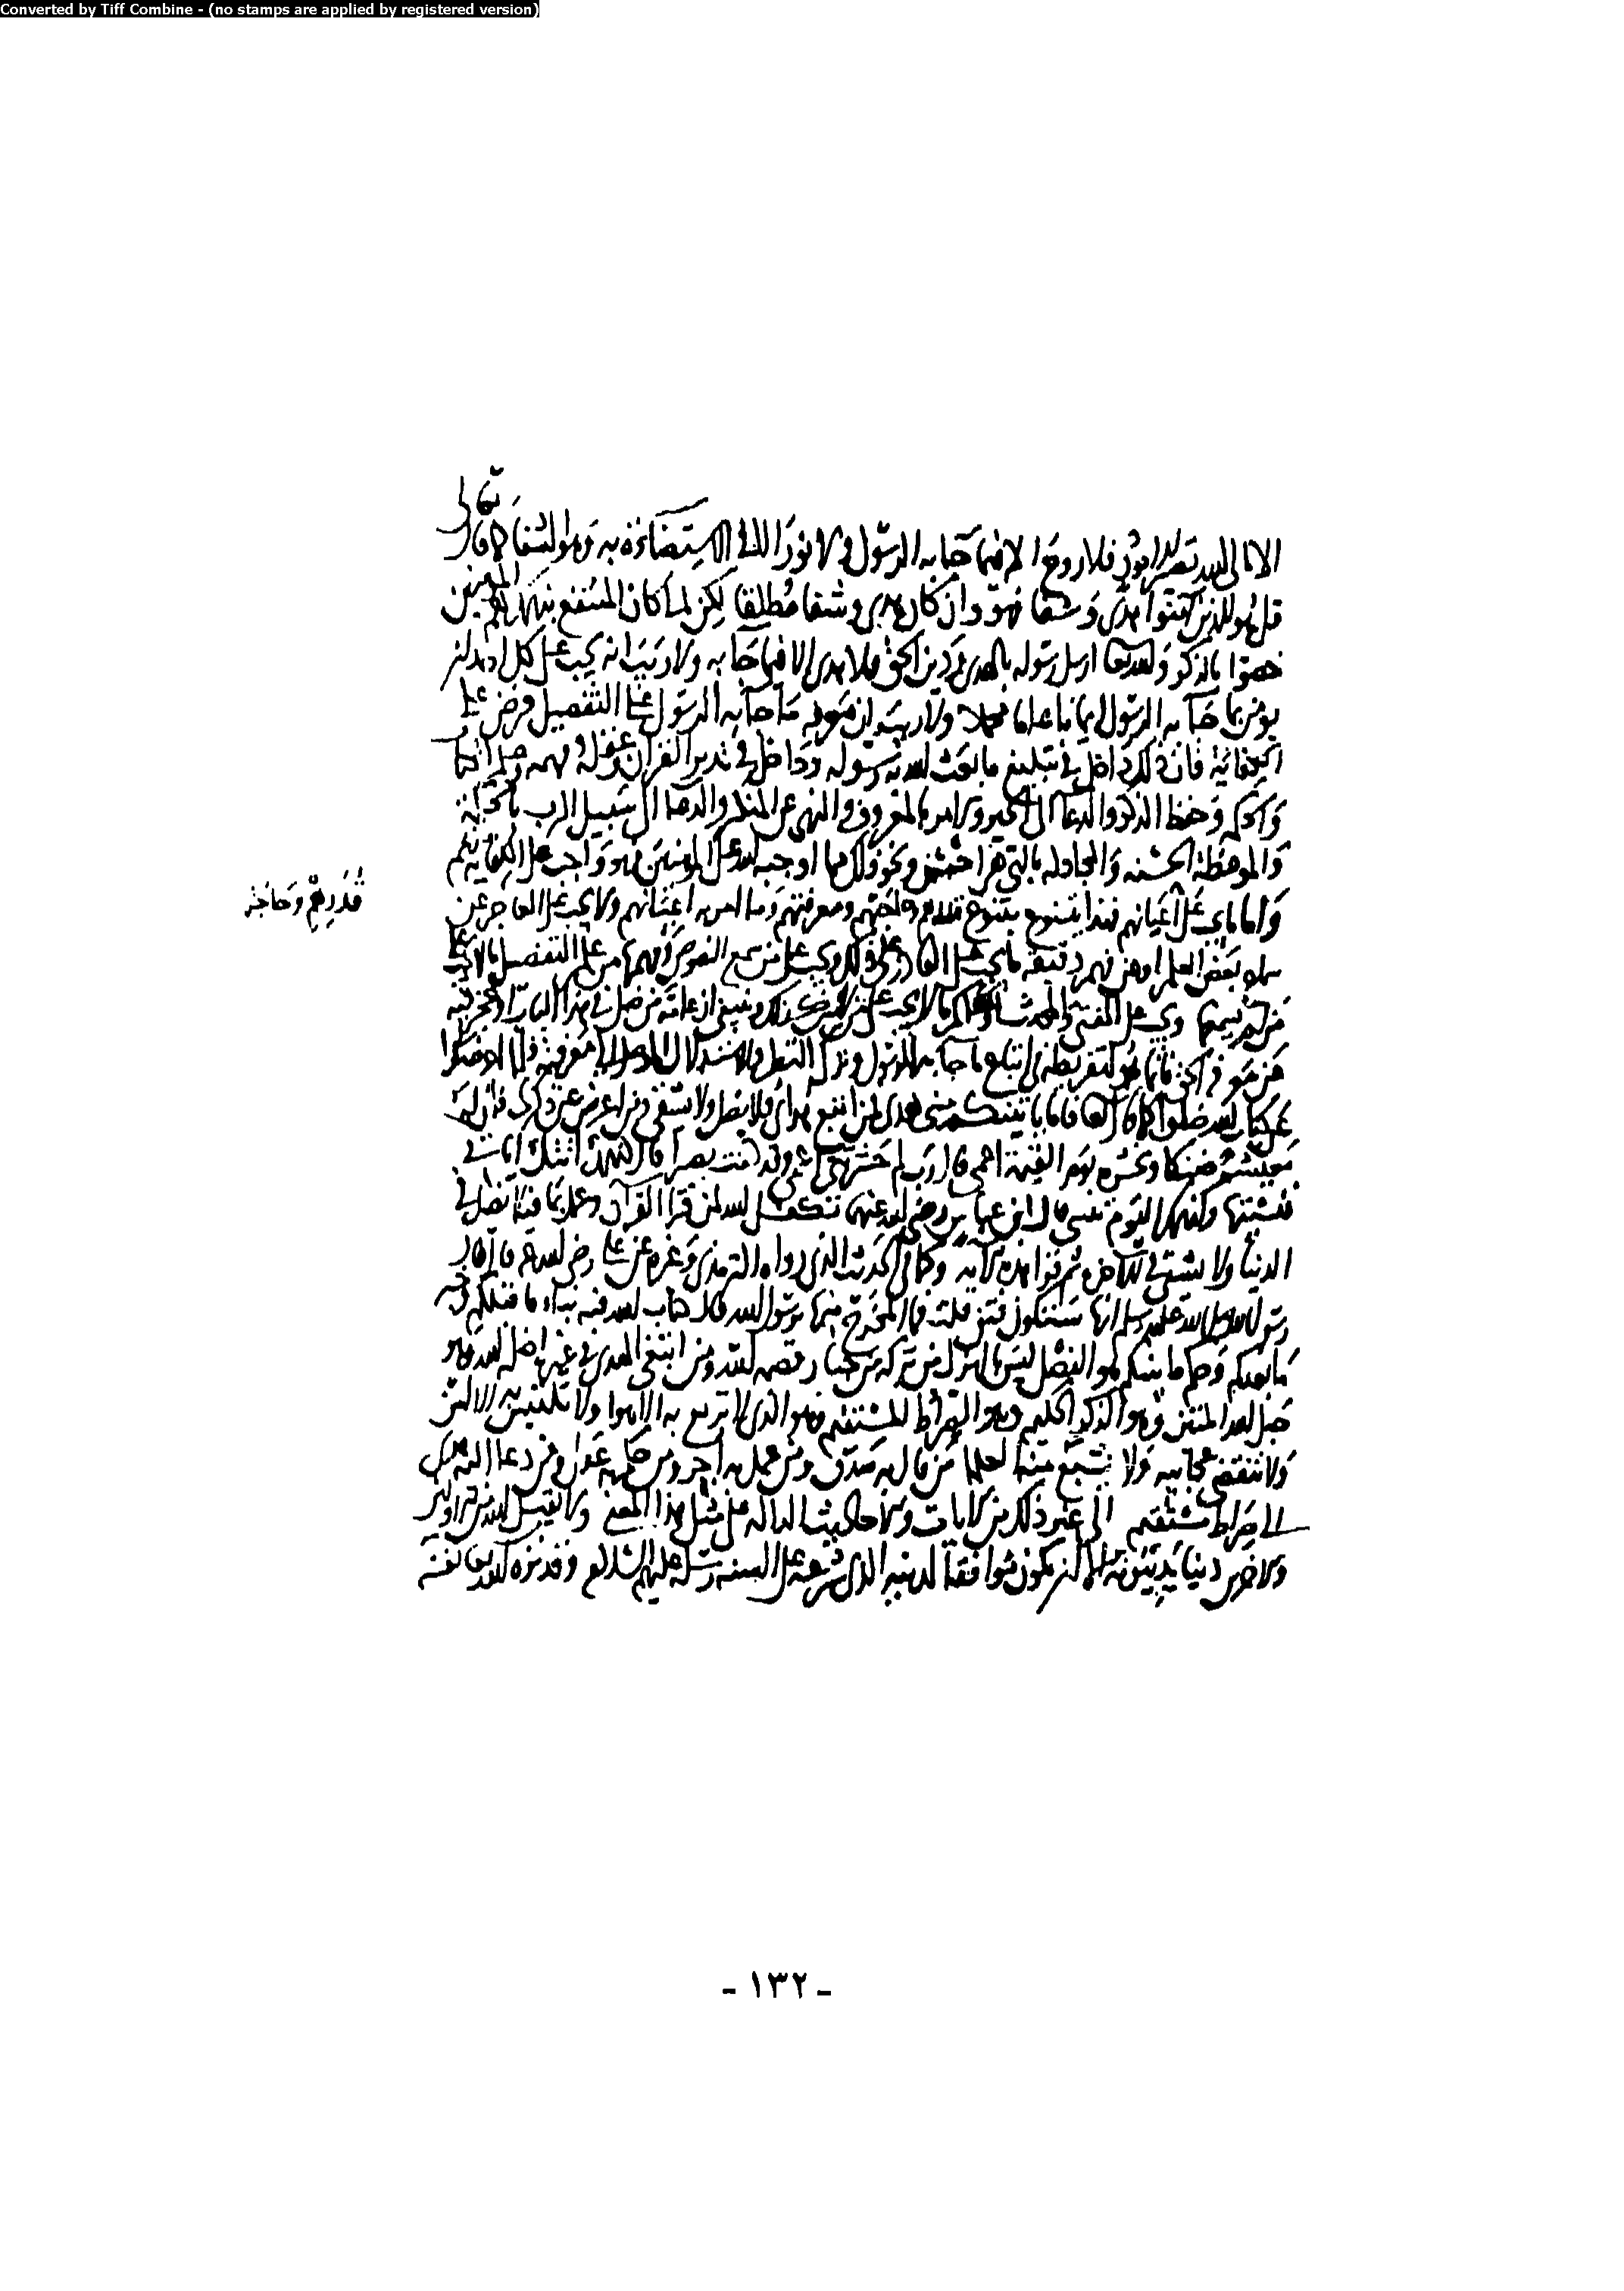 Converted by Tiff Combine - (no stamps are applied by registered version)
الا الى الله تصير الامور فلا روح الا فيما جا به الرسول ولا نور الا في الاستضاءة به وهو الشفا كما قال تعالى
قل هو للذين آمنوا هدى وشفا فهو وان كان هدى وشفا مطلقا لكن لما كان المنتفع بذلك هم المومنين
خصوا بالذكر والله تعالى ارسل رسوله بالهدى ودين الحق فلا هدى الا فيما جا به ولا ريب انه يجب على كل احد ان
يومن بما جا به الرسول ايمانا عاما مجملا ولا ريب ان معرفة ما جا به الرسول على التفصيل فرض على
الكفاية فان ذلك داخل في تبليغ ما بعث الله به رسوله وداخل في تدبر القران وعقله وفهمه وعلم الكتاب
والحكمة وحفظ الذكر والدعا الى الخير والامر بالمعروف والنهي عن المنكر والدعا الى سبيل الرب بالحكمة
والموعظة الحسنه والمجادله بالتي هي احسن ونحو ذلك مما اوجبه الله على المومنين فهو واجب على الكفاية منهم
واما ما يجب على اعيانهم فهذا يتنوع بتنوع ومعرفتهم وما امر به اعيانهم ولا يجب على العاجز عن
قدرهم وحاجتهم
سماع بعض العلم او عن فهم دقيقه ما يجب على القادر على ذلك ويجب على من سمع النصوص وفهمها من علم التفصيل ما لا يجب على
من لم يسمعها ويجب على المفتي والمحدث والحاكم ما لا يجب على من ليس كذلك وينبغي ان عامة من ضل في هذا الباب او عجز فيه
عن معرفة الحق فانما هو لتفريطه في اتباع ما جا به الرسول وترك النظر والاستدلال الموصل الى معرفته فلما اعرضوا
عن كتاب الله ضلوا كما قال تعالى فاما ياتينكم مني هدى فمن اتبع هداي فلا يضل ولا يشقى ومن اعرض عن ذكري فان له
معيشة ضنكا ونحشره يوم القيمة اعمى قال رب لم حشرتني اعمى وقد كنت بصيرا قال كذلك اتتك اياتنا
فنسيتها وكذلك اليوم تنسى قال ابن عباس رضي الله عنهما تكفل الله لمن قرا القرآن وعمل بما فيه ان لا يضل في
الدنيا ولا يشقى في الآخرة ثم قرا هذه الآية وكما في الحديث الذي رواه الترمذي وغيره عن علي رضي الله عنه قال قال
رسول الله صلى الله عليه وسلم انها ستكون فتن قلت فما المخرج منها يا رسول الله قال كتاب الله فيه نبا ما قبلكم وخبر
ما بعدكم وحكم ما بينكم هو الفصل ليس بالهزل من تركه من جبار قصمه الله ومن ابتغى الهدى في غيره اضله الله وهو
حبل الله المتين وهو الذكر الحكيم وهو الصراط المستقيم وهو الذي لا تزيغ به الاهوا ولا تلتبس به الالسن
ولا تنقضي عجائبه ولا يشبع منه العلما من قال به صدق ومن عمل به اجر ومن حكم به عدل ومن دعا اليه هدي
الى صراط مستقيم الى غير ذلك من الايات والاحاديث الداله على مثل هذا المعنى ولا يقبل الله من الاولين
والاخرين دينا يدينونه به الا ان يكون موافقا لدينه الذي شرعه على السنة رسله عليهم السلام وقد نزه الله تعالى نفسه
- ١٣٢ -